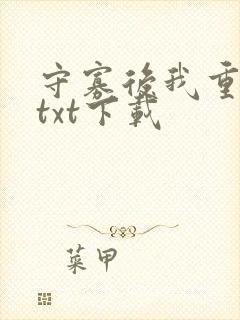 守寡後我重
txt下載
菜甲